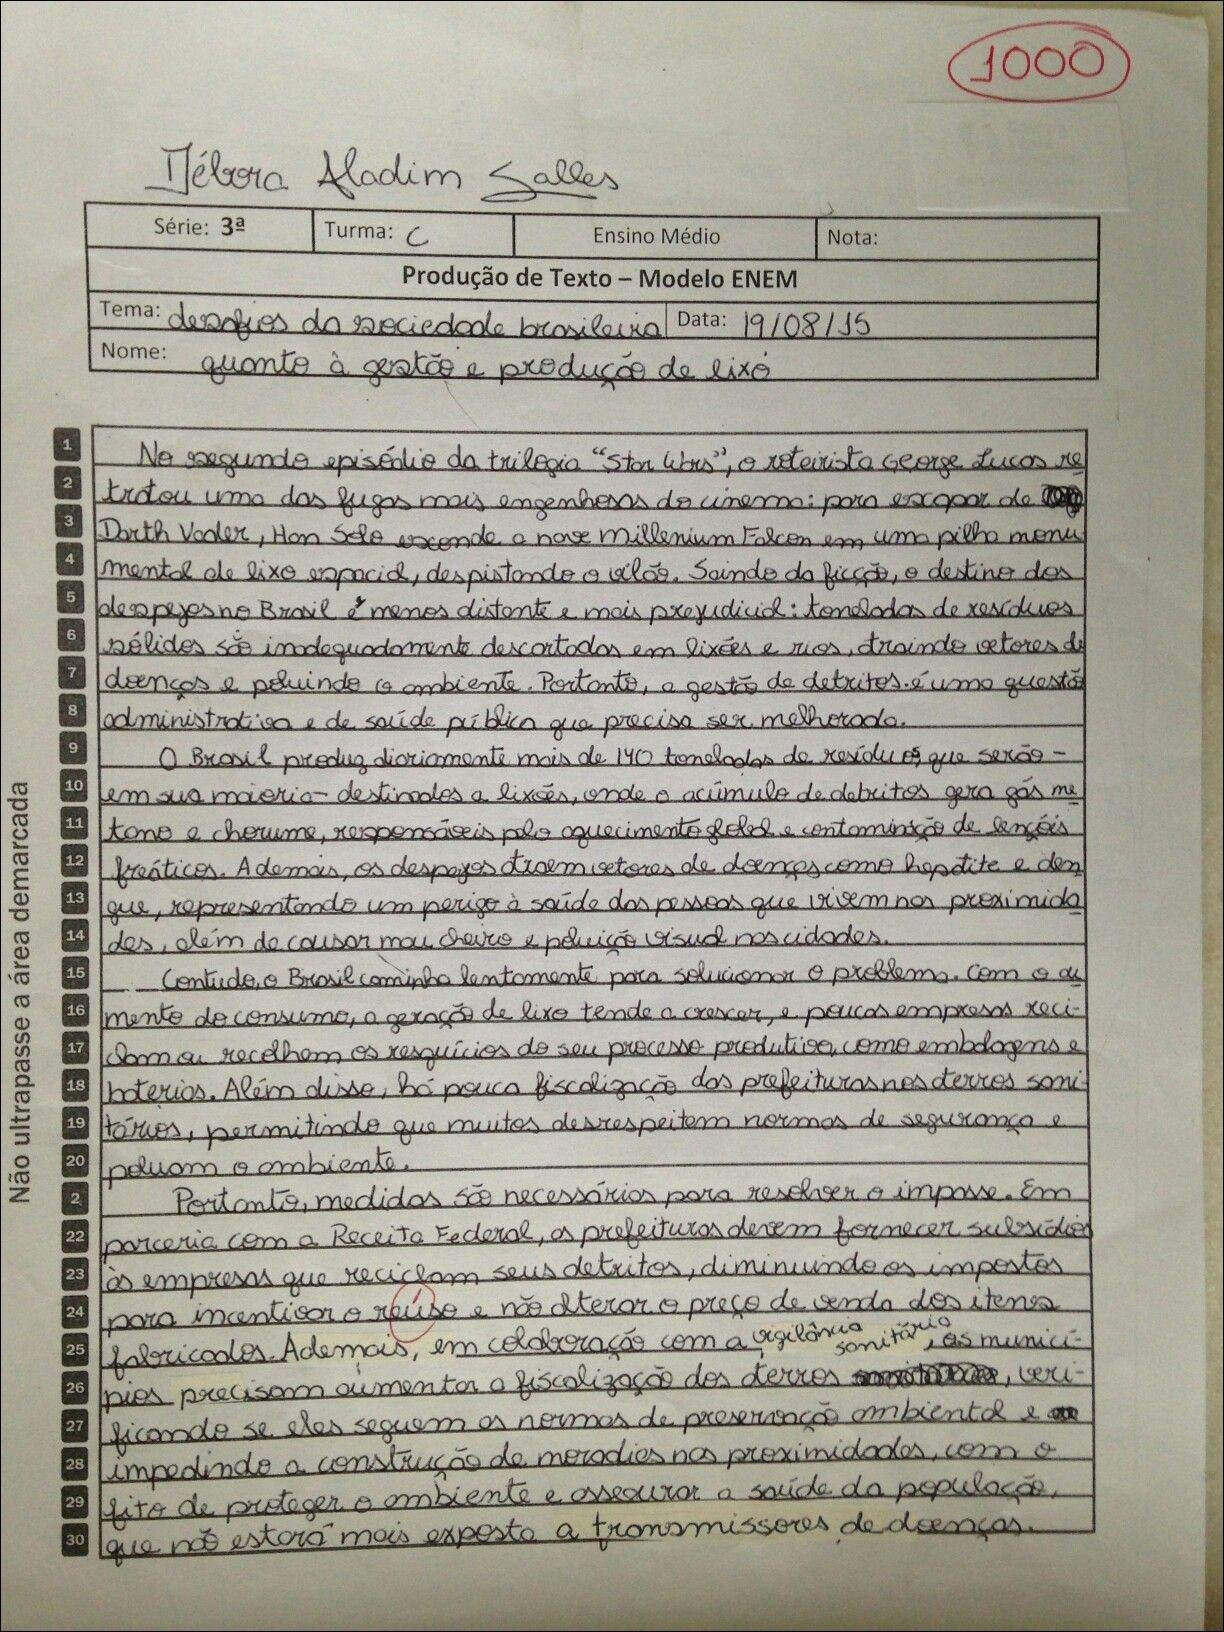 1000
Débora Aladim Salles
Série: 3ª Turma: C Ensino Médio Nota:
Produção de Texto – Modelo ENEM
Tema: desafios da sociedade brasileira Data: 19/08/15
Nome: quanto à gestão e produção de lixo
Não ultrapasse a área demarcada
1 No segundo episódio da trilogia "Star Wars", o roteirista George Lucas re
2 tratou uma das fugas mais engenhosas do cinema: para escapar de
3 Darth Vader, Han Solo esconde a nave Millenium Falcon em uma pilha monu
4 mental de lixo espacial, despistando o vilão. Saindo da ficção, o destino dos
5 despejos no Brasil é menos distante e mais prejudicial: toneladas de resíduos
6 sólidos são inadequadamente descartadas em lixões e rios, atraindo vetores de
7 doenças e poluindo o ambiente. Portanto, a gestão de detritos é uma questão
8 administrativa e de saúde pública que precisa ser melhorada.
9 O Brasil produz diariamente mais de 140 toneladas de resíduos, que serão -
10 em sua maioria - destinados a lixões, onde o acúmulo de detritos gera gás me
11 tano e chorume, responsáveis pelo aquecimento global e contaminação de lençóis
12 freáticos. Ademais, os despejos atraem vetores de doenças como hepatite e den
13 gue, representando um perigo à saúde das pessoas que vivem nas proximida
14 des, além de causar mau cheiro e poluição visual nas cidades.
15 Contudo, o Brasil caminha lentamente para solucionar o problema. Com o au
16 mento do consumo, a geração de lixo tende a crescer, e poucas empresas reci-
17 clam ou recolhem os resquícios do seu processo produtivo, como embalagens e
18 baterias. Além disso, há pouca fiscalização das prefeituras nos aterros sani-
19 tários, permitindo que muitos desrespeitem normas de segurança e
20 poluam o ambiente.
2 Portanto, medidas são necessárias para resolver o impasse. Em
22 parceria com a Receita Federal, as prefeituras devem fornecer subsídios
23 às empresas que reciclam seus detritos, diminuindo os impostos
24 para incentivar o reúso e não alterar o preço de venda dos itens
25 fabricados. Ademais, em colaboração com a vigilância sanitária, os municí-
26 pios precisam aumentar a fiscalização dos aterros, veri-
27 ficando se eles seguem as normas de preservação ambiental e
28 impedindo a construção de moradias nas proximidades, com o
29 fito de proteger o ambiente e assegurar a saúde da população,
30 que não estará mais exposta a transmissores de doenças.